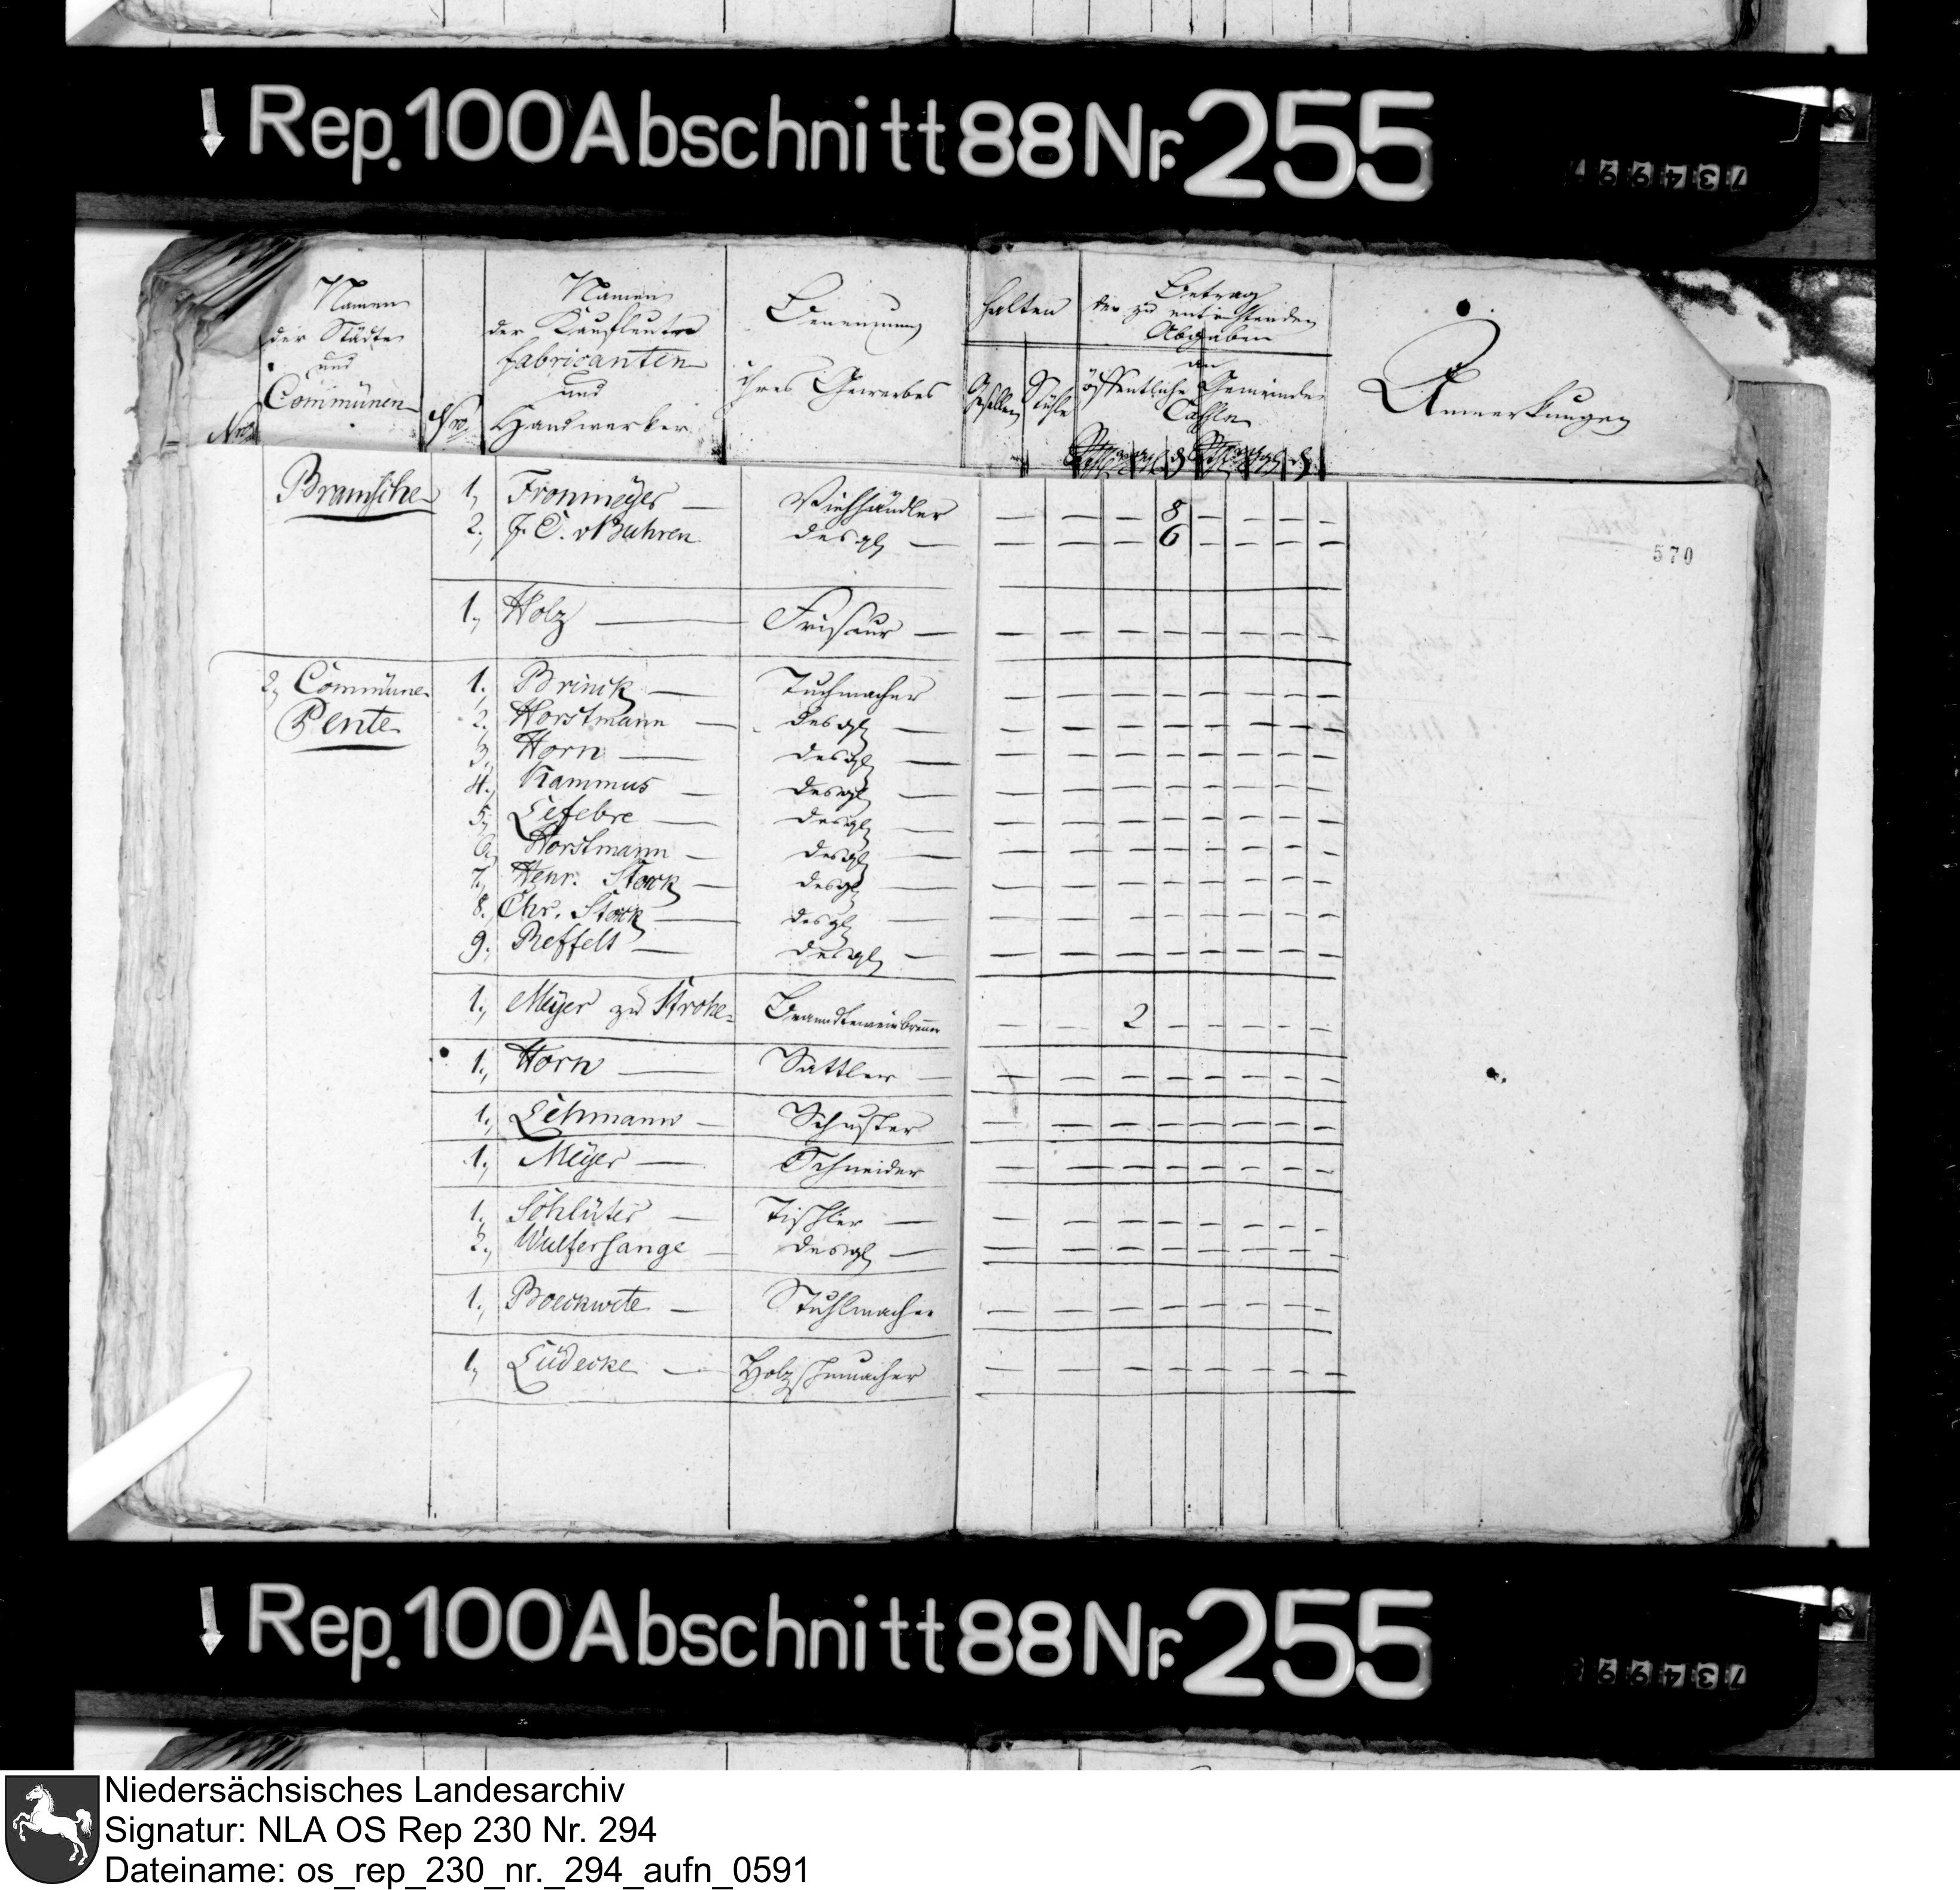 Rep. 100 Abschnitt 88 Nr. 255
734997
Namen der Städte und Communen
Nro
Namen der Kaufleute fabricanten und Handwerker
Benennung ihres Gewerbes
halten
Gesellen
Stühle
Betrag der zu entrichtenden Abgaben
an
öffentliche
Gemeinde
Cassen
Anmerkungen
570
Bramsche
1, Fronmeyer — Viehhändler — — — 8 — — — —
2, J. C. v Buhren desgl — — — — 6 — — — —
1, Holz — Friseur — — — — — — — — —
2, Commüne Pente
1, Brinck — Tuchmacher — — — — — — — —
2, Horstmann — desgl — — — — — — — — —
3, Horn — desgl — — — — — — — — —
4, Kammus — desgl — — — — — — — — —
5, Lefebre — desgl — — — — — — — — —
6, Horstmann — desgl — — — — — — — — —
7, Henr. Stork — desgl — — — — — — — — —
8, Chr. Stork — desgl — — — — — — — — —
9, Reffelt — desgl — — — — — — — — —
1, Meyer zu Strohe Branndteweinbrenner — — 2 — — — — —
1, Horn — Sattler — — — — — — — — —
1, Lehmann — Schuster — — — — — — — —
1, Meyer — Schneider — — — — — — — —
1, Schlüter — Tischler — — — — — — — — —
2, Wulfersange — desgl — — — — — — — — —
1, Boeckwete — Stuhlmacher — — — — — — — —
1, Lüdecke — Holzschumacher — — — — — — — —
Rep. 100 Abschnitt 88 Nr. 255
734997
Niedersächsisches Landesarchiv
Signatur: NLA OS Rep 230 Nr. 294
Dateiname: os_rep_230_nr._294_aufn_0591